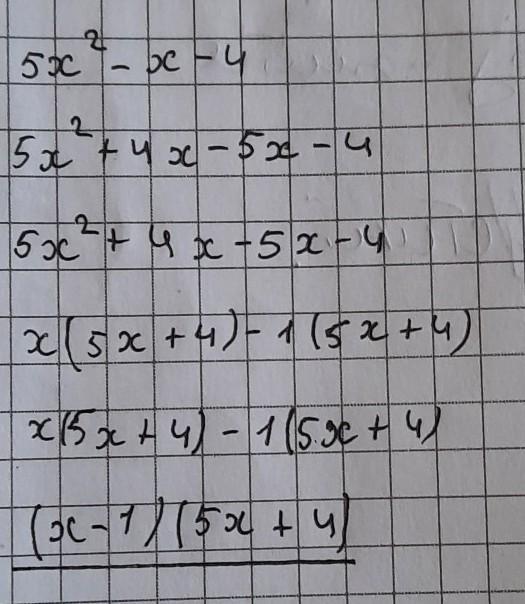 5x² - x - 4
5x² + 4x - 5x - 4
5x² + 4x - 5x - 4
x(5x + 4) - 1(5x + 4)
x(5x + 4) - 1(5x + 4)
(x - 1)(5x + 4)